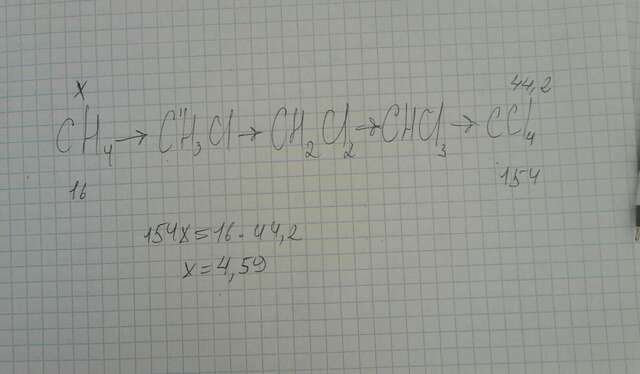 x 44,2
CH₄ → CH₃Cl → CH₂Cl₂ → CHCl₃ → CCl₄
16 154
154x = 16 · 44,2
x = 4,59